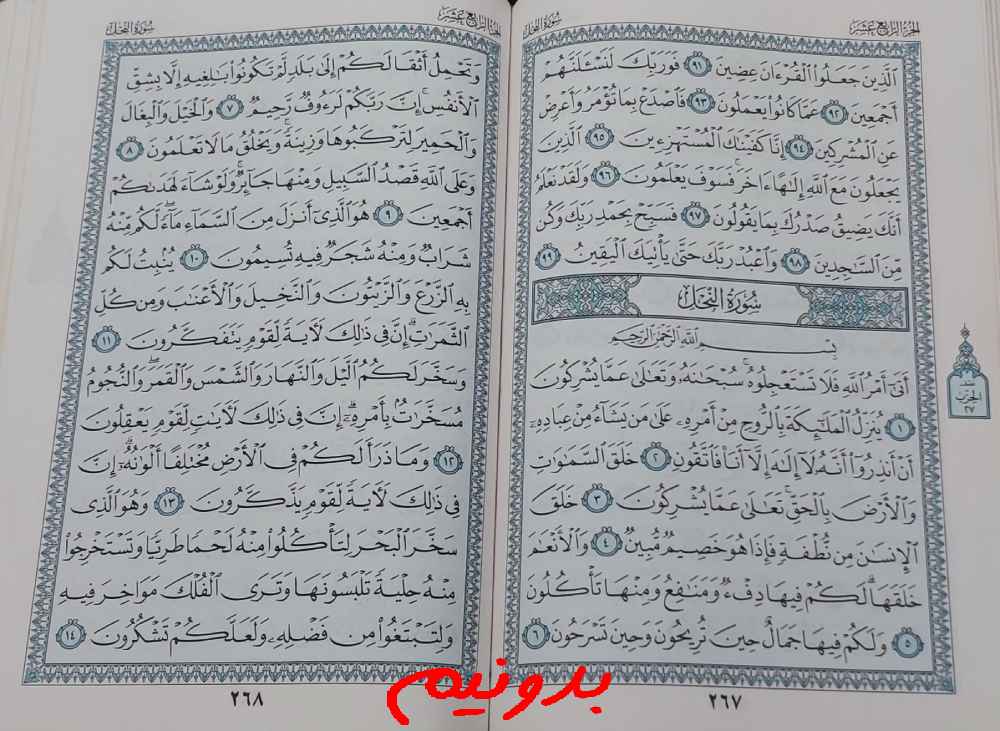 الجزء الرابع عشر
سورة النحل
الَّذِينَ جَعَلُوا الْقُرْءَانَ عِضِينَ ٩١ فَوَرَبِّكَ لَنَسْـَٔلَنَّهُمْ
أَجْمَعِينَ ٩٢ عَمَّا كَانُوا يَعْمَلُونَ ٩٣ فَاصْدَعْ بِمَا تُؤْمَرُ وَأَعْرِضْ
عَنِ الْمُشْرِكِينَ ٩٤ إِنَّا كَفَيْنَاكَ الْمُسْتَهْزِءِينَ ٩٥ الَّذِينَ
يَجْعَلُونَ مَعَ اللَّهِ إِلَٰهًا ءَاخَرَ ۚ فَسَوْفَ يَعْلَمُونَ ٩٦ وَلَقَدْ نَعْلَمُ
أَنَّكَ يَضِيقُ صَدْرُكَ بِمَا يَقُولُونَ ٩٧ فَسَبِّحْ بِحَمْدِ رَبِّكَ وَكُن
مِّنَ السَّٰجِدِينَ ٩٨ وَاعْبُدْ رَبَّكَ حَتَّىٰ يَأْتِيَكَ الْيَقِينُ ٩٩
سُورَةُ النَّحْلِ
بِسْمِ اللَّهِ الرَّحْمَٰنِ الرَّحِيمِ
أَتَىٰ أَمْرُ اللَّهِ فَلَا تَسْتَعْجِلُوهُ ۚ سُبْحَٰنَهُۥ وَتَعَٰلَىٰ عَمَّا يُشْرِكُونَ
١ يُنَزِّلُ الْمَلَٰٓئِكَةَ بِالرُّوحِ مِنْ أَمْرِهِۦ عَلَىٰ مَن يَشَآءُ مِنْ عِبَادِهِۦٓ
أَنْ أَنذِرُوٓا أَنَّهُۥ لَآ إِلَٰهَ إِلَّآ أَنَا۠ فَاتَّقُونِ ٢ خَلَقَ السَّمَٰوَٰتِ
وَالْأَرْضَ بِالْحَقِّ ۚ تَعَٰلَىٰ عَمَّا يُشْرِكُونَ ٣ خَلَقَ
الْإِنسَٰنَ مِن نُّطْفَةٍ فَإِذَا هُوَ خَصِيمٌ مُّبِينٌ ٤ وَالْأَنْعَٰمَ
خَلَقَهَا ۗ لَكُمْ فِيهَا دِفْءٌ وَمَنَٰفِعُ وَمِنْهَا تَأْكُلُونَ
٥ وَلَكُمْ فِيهَا جَمَالٌ حِينَ تُرِيحُونَ وَحِينَ تَسْرَحُونَ ٦
٢٦٧
نصف
الحزب
٢٧
الجزء الرابع عشر
سورة النحل
وَتَحْمِلُ أَثْقَالَكُمْ إِلَىٰ بَلَدٍ لَّمْ تَكُونُوا بَٰلِغِيهِ إِلَّا بِشِقِّ
الْأَنفُسِ ۚ إِنَّ رَبَّكُمْ لَرَءُوفٌ رَّحِيمٌ ٧ وَالْخَيْلَ وَالْبِغَالَ
وَالْحَمِيرَ لِتَرْكَبُوهَا وَزِينَةً ۚ وَيَخْلُقُ مَا لَا تَعْلَمُونَ ٨
وَعَلَى اللَّهِ قَصْدُ السَّبِيلِ وَمِنْهَا جَآئِرٌ ۚ وَلَوْ شَآءَ لَهَدَىٰكُمْ
أَجْمَعِينَ ٩ هُوَ الَّذِىٓ أَنزَلَ مِنَ السَّمَآءِ مَآءً ۖ لَّكُم مِّنْهُ
شَرَابٌ وَمِنْهُ شَجَرٌ فِيهِ تُسِيمُونَ ١٠ يُنۢبِتُ لَكُم
بِهِ الزَّرْعَ وَالزَّيْتُونَ وَالنَّخِيلَ وَالْأَعْنَٰبَ وَمِن كُلِّ
الثَّمَرَٰتِ ۗ إِنَّ فِى ذَٰلِكَ لَءَايَةً لِّقَوْمٍ يَتَفَكَّرُونَ ١١
وَسَخَّرَ لَكُمُ الَّيْلَ وَالنَّهَارَ وَالشَّمْسَ وَالْقَمَرَ ۖ وَالنُّجُومُ
مُسَخَّرَٰتٌۢ بِأَمْرِهِۦٓ ۗ إِنَّ فِى ذَٰلِكَ لَءَايَٰتٍ لِّقَوْمٍ يَعْقِلُونَ
١٢ وَمَا ذَرَأَ لَكُمْ فِى الْأَرْضِ مُخْتَلِفًا أَلْوَٰنُهُۥٓ ۗ إِنَّ
فِى ذَٰلِكَ لَءَايَةً لِّقَوْمٍ يَذَّكَّرُونَ ١٣ وَهُوَ الَّذِى
سَخَّرَ الْبَحْرَ لِتَأْكُلُوا مِنْهُ لَحْمًا طَرِيًّا وَتَسْتَخْرِجُوا
مِنْهُ حِلْيَةً تَلْبَسُونَهَا وَتَرَى الْفُلْكَ مَوَاخِرَ فِيهِ
وَلِتَبْتَغُوا مِن فَضْلِهِۦ وَلَعَلَّكُمْ تَشْكُرُونَ ١٤
٢٦٨
بدونیم